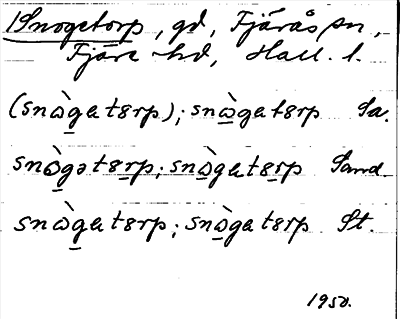 Snogetorp, gd, Fjärås sn,
Fjäre hd, Hall. l.
(snὼgatɞrp); snὼgatɞrp Sa.
snὼgətɞrp; snὼgatɞrp Sand.
snὼgatɞrp; snὼgatɞrp St.
1950.